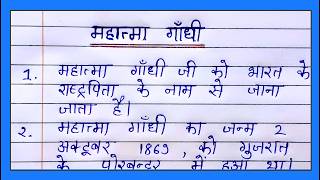 महात्मा गाँधी
1. महात्मा गाँधी जी को भारत के
राष्ट्रपिता के नाम से जाना
जाता है।
2. महात्मा गाँधी का जन्म 2
अक्टूबर 1869, को गुजरात
के पोरबन्दर में हुआ था।